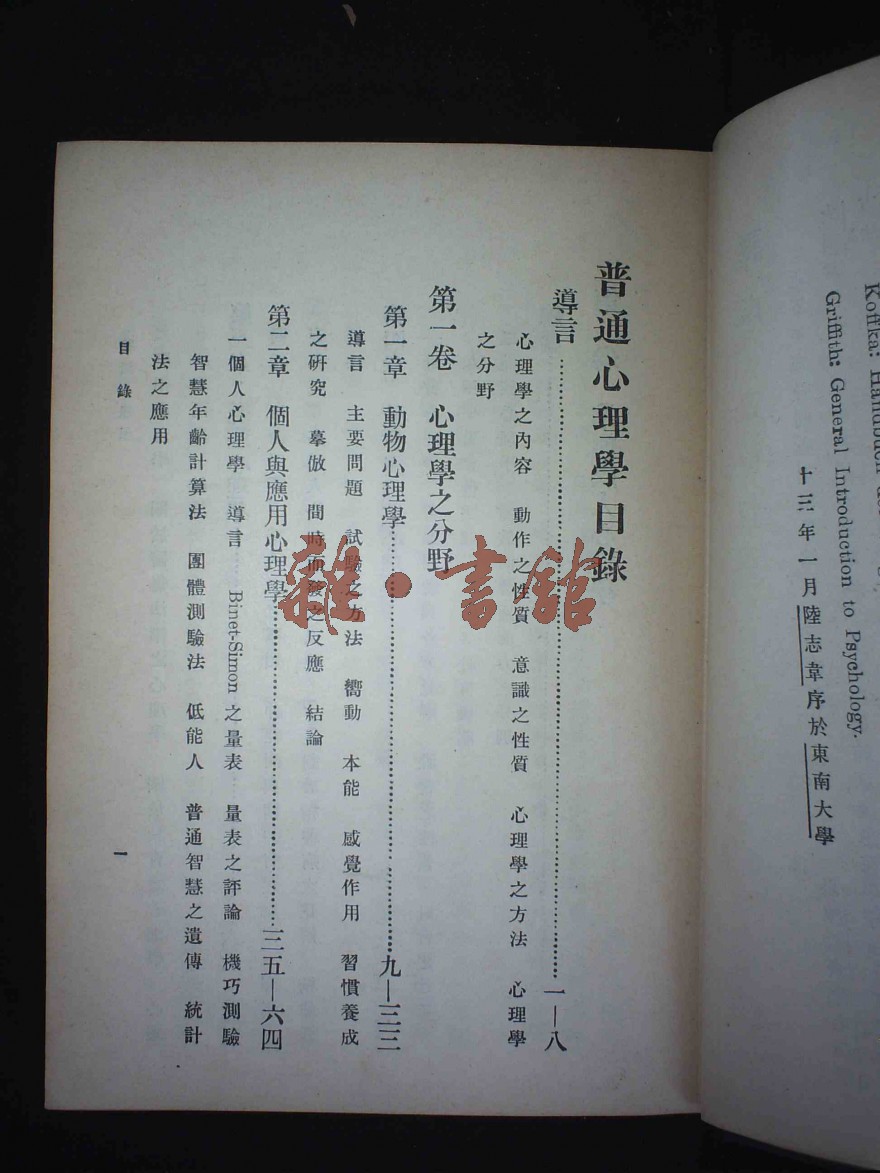 Koffka: Handbuch
Griffith: General Introduction to Psychology.
十三年一月陸志韋序於東南大學
普通心理學目錄
導言……一—八
心理學之內容 動作之性質 意識之性質 心理學之方法 心理學
之分野
第一卷 心理學之分野
第一章 動物心理學……九—三三
導言 主要問題 試驗之方法 嚮動 本能 感覺作用 習慣養成
之研究 摹倣 間時而發之反應 結論
第二章 個人與應用心理學……三五—六四
一個人心理學 導言 Binet-Simon 之量表 量表之評論 機巧測驗
智慧年齡計算法 團體測驗法 低能人 普通智慧之遺傳 統計
法之應用
目錄
一
雜·書館